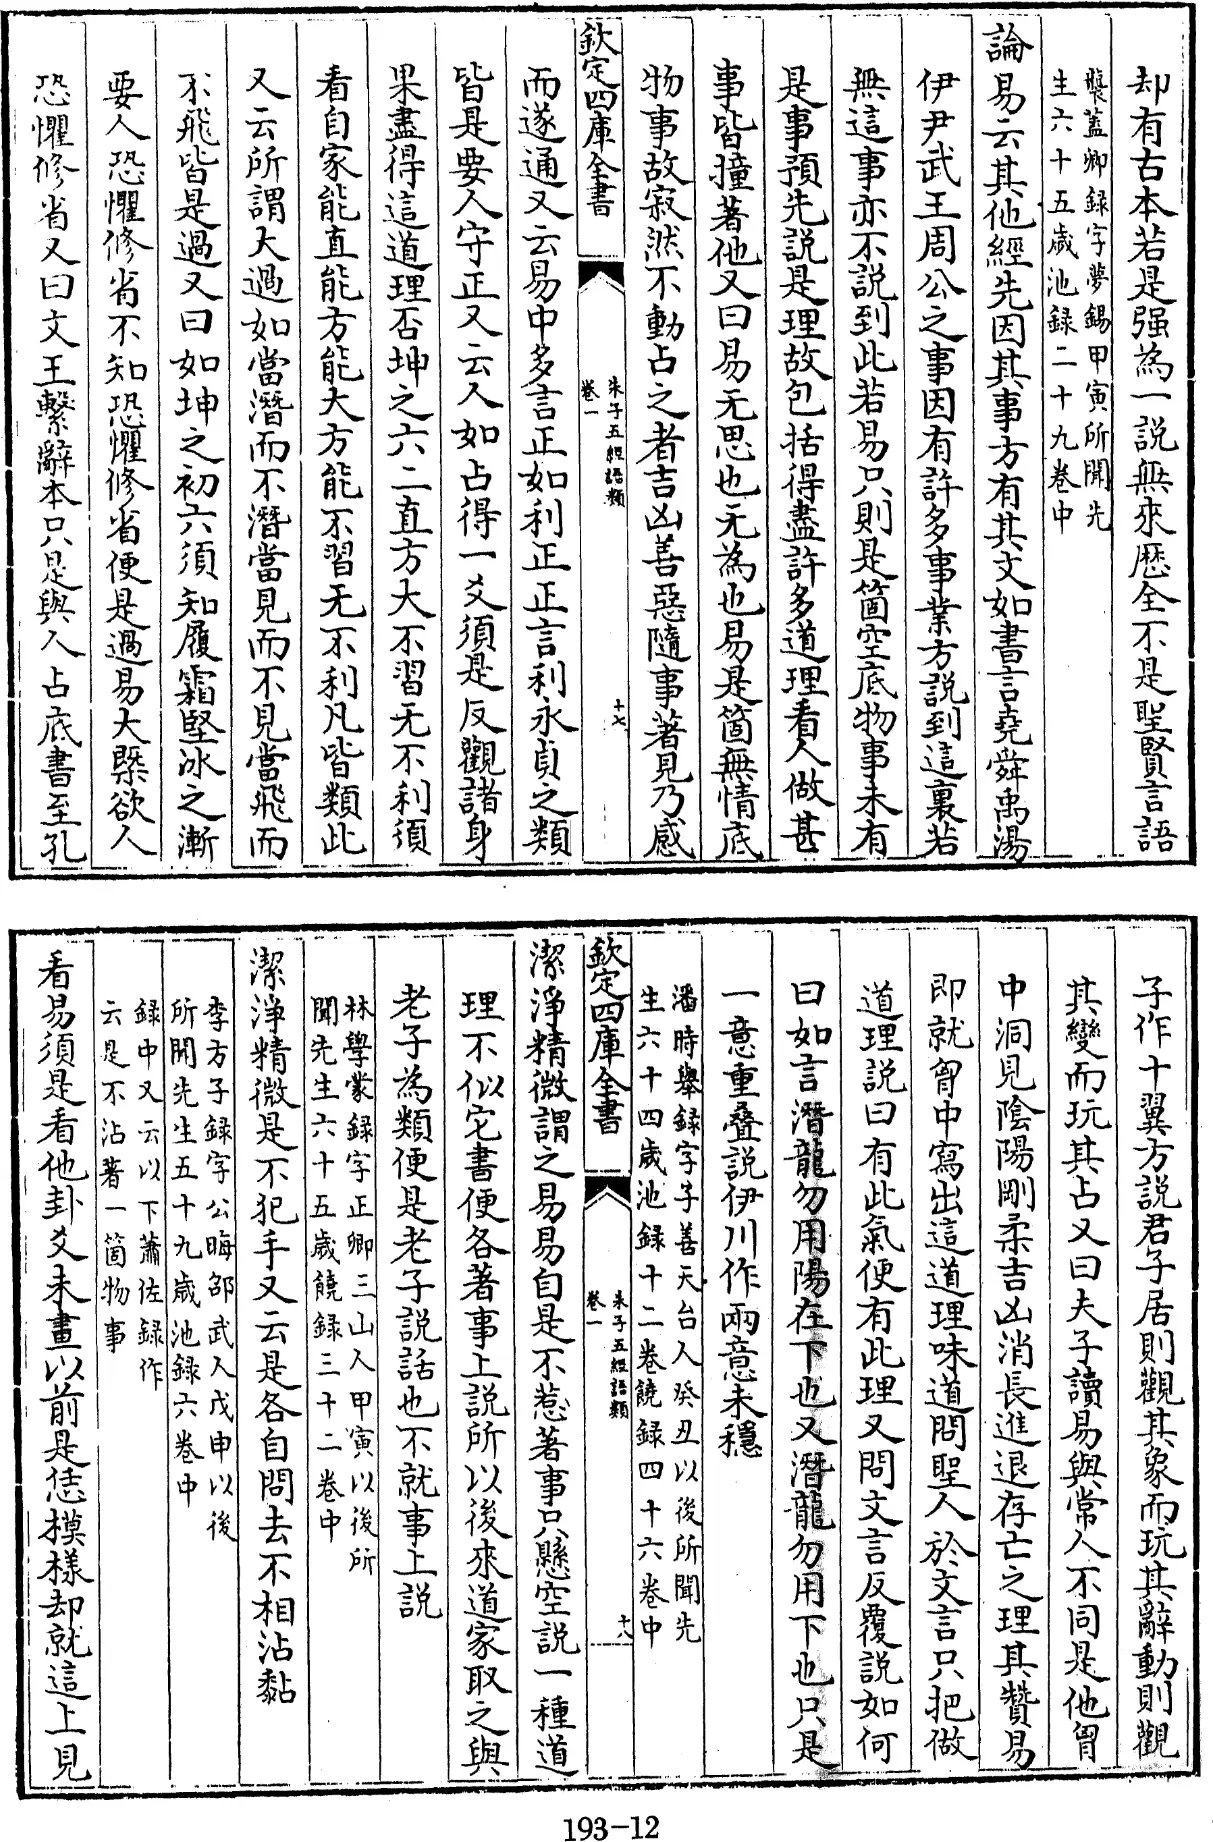 却有古本若是强為一說無來歷全不是聖賢言語
龔蓋卿録字夢錫甲寅所聞先
生六十五歳池録二十九卷中
論易云其他經先因其事方有其文如書言堯舜禹湯
伊尹武王周公之事因有許多事業方説到這裏若
無這事亦不説到此若易只則是箇空底物事未有
是事預先説是理故包括得盡許多道理看人做甚
事皆撞著他又曰易无思也无為也易是箇無情底
物事故寂然不動占之者吉凶善惡隨事著見乃感
欽定四庫全書
朱子五經語類
卷一
十七
而遂通又云易中多言正如利正正言利永貞之類
皆是要人守正又云人如占得一爻須是反觀諸身
果盡得這道理否坤之六二直方大不習无不利須
看自家能直能方能大方能不習无不利凡皆類此
又云所謂大過如當潛而不潛當見而不見當飛而
不飛皆是過又曰如坤之初六須知履霜堅冰之漸
要人恐懼修省不知恐懼修省便是過易大槩欲人
恐懼修省又曰文王繫辭本只是與人占底書至孔
子作十翼方説君子居則觀其象而玩其辭動則觀
其變而玩其占又曰夫子讀易與常人不同是他胷
中洞見陰陽剛柔吉凶消長進退存亡之理其贊易
即就胷中寫出這道理味道問聖人於文言只把做
道理説曰有此氣便有此理又問文言反覆説如何
曰如言潛龍勿用陽在下也又潛龍勿用下也只是
一意重疊説伊川作兩意未穩
潘時舉録字子善天台人癸丑以後所聞先
生六十四歲池録十二卷饒録四十六卷中
欽定四庫全書
朱子五經語類
卷一
十八
潔淨精微謂之易易自是不惹著事只懸空説一種道
理不似它書便各著事上説所以後來道家取之與
老子為類便是老子説話也不就事上説
林學蒙録字正卿三山人甲寅以後所
聞先生六十五歳饒録三十二卷中
潔淨精微是不犯手又云是各自問去不相沾黏
李方子録字公晦邵武人戊申以後
所聞先生五十九歳池録六卷中
録中又云以下蕭佐録作
云是不沾著一箇物事
看易須是看他卦爻未畫以前是恁模樣却就這上見
193-12